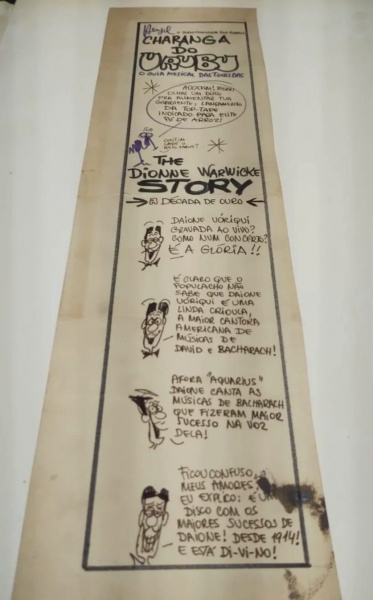 CHARANGA
DO
URUBU
O GUIA MUSICAL DAS TORCIDAS
PRA ALIMENTAR TUA
LANÇAMENTO
DA TOP-TAPE
INDICADO PARA
PÉ DE ARROZ!
THE
DIONNE WARWICKE
STORY
DÉCADA DE OURO
DAIONE UÓRIQUI
GRAVADA AO VIVO?
COMO NUM CONCERTO?
É A GLÓRIA!!
É CLARO QUE O
POPULACHO NÃO
SABE QUE DAIONE
UÓRIQUI É UMA
LINDA CRIOULA,
A MAIOR CANTORA
AMERICANA DE
MÚSICAS DE
DAVID E BACHARACH!
AFORA "AQUARIUS"
DAIONE CANTA AS
MÚSICAS DE BACHARACH
QUE FIZERAM MAIOR
SUCESSO NA VOZ
DELA!
FICOU CONFUSO,
MEUS AMORES,
EU EXPLICO: É UM
DISCO COM OS
MAIORES SUCESSOS DE
DAIONE! DESDE 1914!
E ESTÁ DI-VI-NO!